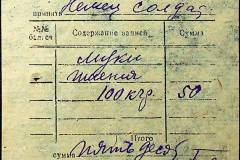 принята Немец солдат
№№ бил. сч Содержание записей Сумма
муки
100 кгр. 50
Итого
сумма пятьдеся